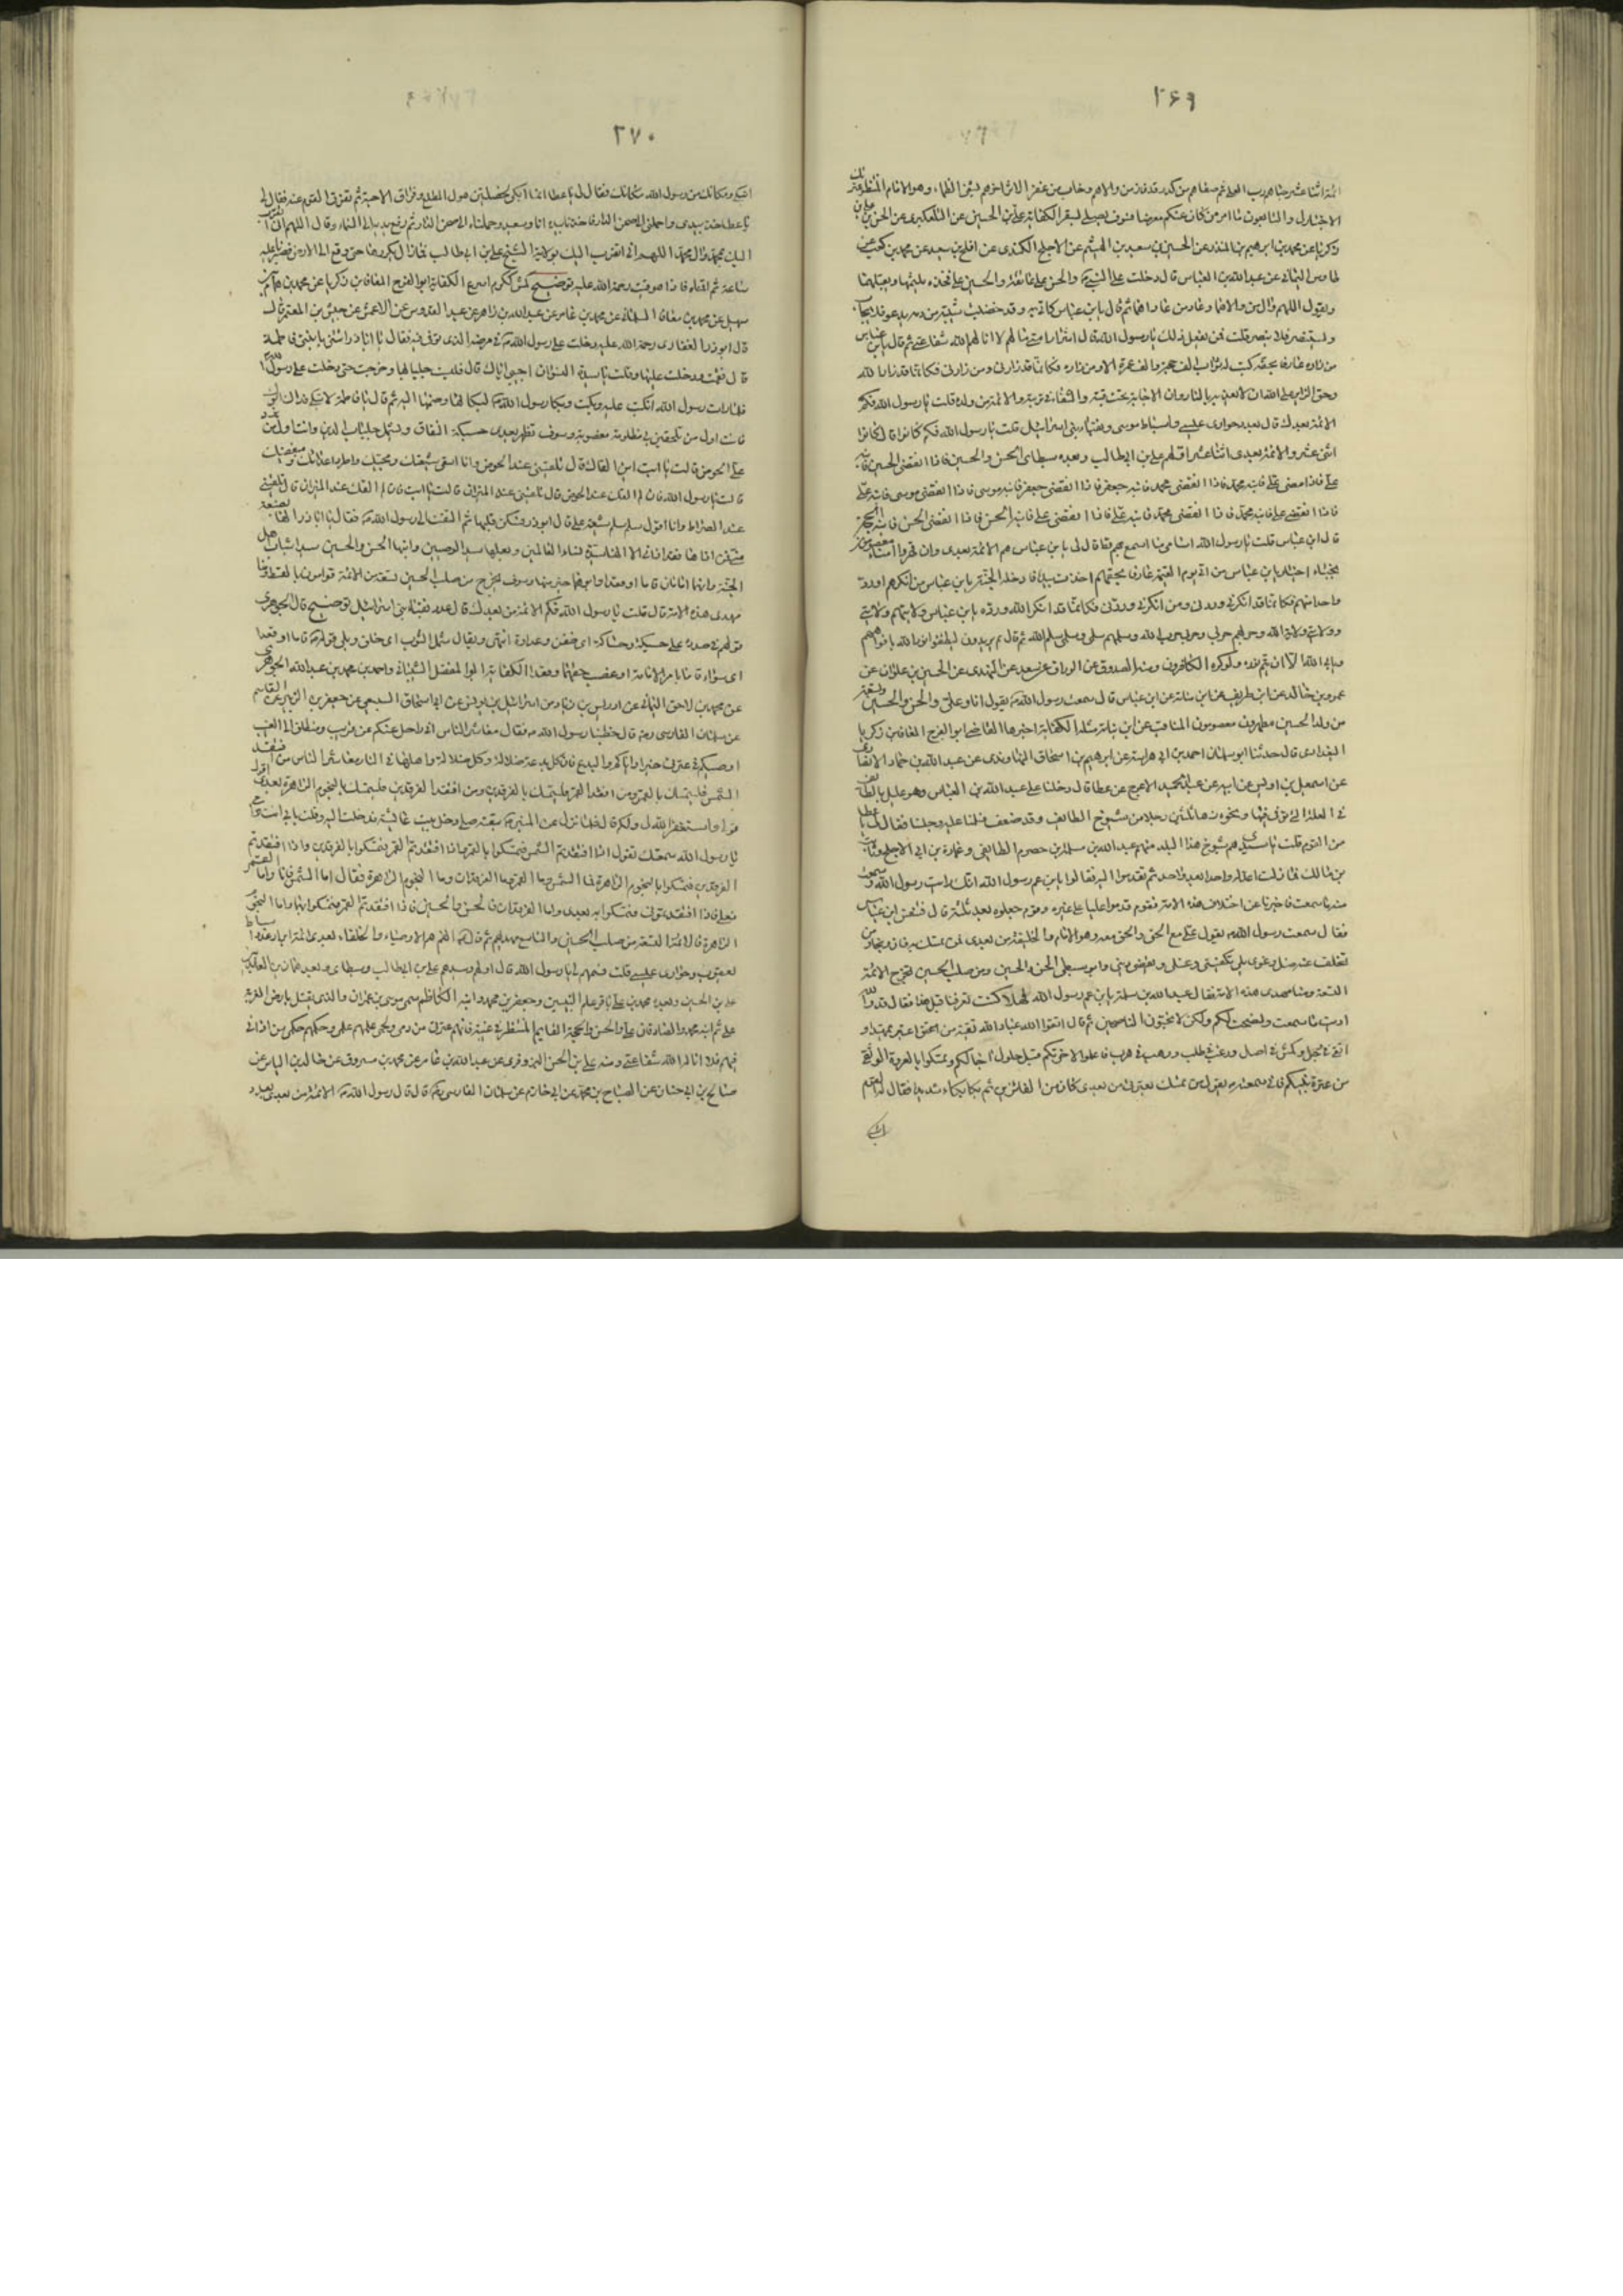 ٢۶٩
ائمة اثنا عشر
الاختيار لى والتابعون
زكريا عن محمد بن ابراهيم بن المنذر عن الحسين بن سعيد بن الهيثم عن الاجلح الكندى عن افلح بن سعيد عن محمد بن كعب عن
طاوس اليمانى عن عبد الله بن العباس قال دخلت على النبى والحسن على عاتقه والحسين على فخذه يلثمهما ويقبلهما
ويقول اللهم وال من والاهما وعاد من عاداهما ثم قال يا بن عباس كانى به وقد خضبت شيبته من دمه يدعو فلا يجاب
ويستنصر فلا ينصر قلت فمن يفعل ذلك يا رسول الله قال اشرار امتى مالهم لا انالهم الله شفاعتى ثم قال يا بن عباس
من زاره عارفا بحقه كتب له ثواب الف حجة والف عمرة الا ومن زاره فكانما قد زارنى ومن زارنى فكانما قد زار الله
وحق الزائر على الله ان لا يعذبه بالنار وان الاجابة تحت قبته والشفاء فى تربته والائمة من ولده قلت يا رسول الله فكم
الائمة بعدك قال بعدد حوارى عيسى واسباط موسى ونقباء بنى اسرائيل قلت يا رسول الله فكم كانوا قال كانوا
اثنى عشر والائمة بعدى اثنا عشر اولهم على بن ابى طالب وبعده سبطاى الحسن والحسين فاذا انقضى الحسين فابنه
على فاذا مضى على فابنه محمد فاذا انقضى محمد فابنه جعفر فاذا انقضى جعفر فابنه موسى فاذا انقضى موسى فابنه على
فاذا انقضى على فابنه محمد فاذا انقضى محمد فابنه على فاذا انقضى على فابنه الحسن فاذا انقضى الحسن فابنه الحجة
قال ابن عباس قلت يا رسول الله اسامى ما اسمع بهم قط قال لى يا بن عباس هم الائمة بعدى وان قهروا امناء معصومون
نجباء اخيار يا بن عباس من اتى يوم القيمة عارفا بحقهم اخذت بيده فادخله الجنة يا بن عباس من انكرهم او رد
واحدا منهم فكانما قد انكرنى وردنى ومن انكرنى وردنى فكانما قد انكر الله ورده يا بن عباس
وولايتى ولاية الله وحربهم حربى وحربى حرب الله وسلمهم سلمى وسلمى سلم الله ثم قال يريدون ليطفئوا نور الله بافواههم
ويابى الله الا ان يتم نوره ولو كره الكافرون ومنه الصدوق عن الوراق عن سعد عن النهدى عن الحسين بن علوان عن
عمرو بن خالد عن ابن طريف عن ابن نباتة عن ابن عباس قال سمعت رسول الله يقول انا وعلى والحسن والحسين وتسعة
من ولد الحسين مطهرون معصومون المناقب عن ابن نباتة مثله الكفاية اخبرنا القاضى ابو الفرج المعافا بن زكريا
البغدادى قال حدثنا ابو سليمان احمد بن ابى هراسة عن ابراهيم بن اسحاق النهاوندى عن عبد الله بن حماد الانصارى
عن اسمعيل بن اويس عن ابيه عن عبد الحميد الاعرج عن عطا قال دخلنا على عبد الله بن العباس وهو عليل بالطائف
فى العلة التى توفى فيها ونحن رهاء ثلثين رجلا من شيوخ الطائف وقد ضعف فسلمنا عليه وجلسنا فقال لى يا عطا
من القوم قلت يا سيدى هم شيوخ هذا البلد منهم عبد الله بن سلمة بن حصرم الطائفى وعمارة بن ابى الاجلح وثابت
بن مالك فما زلت اعد له واحدا بعد واحد ثم تقدموا اليه فقالوا يا بن عم رسول الله انك رايت رسول الله وسمعت
منه ما سمعت فاخبرنا عن اختلاف هذه الامة فقوم قدموا عليا على غيره وقوم جعلوه بعد ثلثة قال فتنفس ابن عباس
فقال سمعت رسول الله يقول على مع الحق والحق معه وهو الامام والخليفة من بعدى فمن تمسك به فاز ونجا ومن
تخلف عنه ضل وغوى بلى يكفننى ويغسلنى ويقضى دينى وابو سبطى الحسن والحسين ومن صلب الحسين تخرج الائمة
التسعة ومنا مهدى هذه الامة فقال عبد الله بن سلمة يا بن عم رسول الله فهلا كنت تعرفنا قبل هذا فقال قد والله
اديت ما سمعت ونصحت لكم ولكن لا تحبون الناصحين ثم قال اتقوا الله عباد الله تقية من اعتبر
اتقى فى وجل وكمش فى مهل ورغب فى طلب ورهب فى هرب فاعملوا لاخرتكم قبل حلول اجالكم وتمسكوا بالعروة الوثقى
من عترة نبيكم فانى سمعته يقول من تمسك بعترتى من بعدى كان من الفائزين ثم بكا بكاء شديدا فقال له القوم
اتبكى
٢٧٠
اتبكى ومكانك من رسول الله مكانك فقال لى يا عطا انما ابكى لخصلتين هول المطلع وفراق الاحبة ثم تفرق القوم عنه فقال لى
يا عطا خذ بيدى واحملنى الى صحن الدار فاخذنا بيده انا وسعيد وحملناه الى صحن الدار ثم رفع يديه الى السماء وقال اللهم انى اتقرب
اليك بمحمد وال محمد اللهم انى اتقرب اليك بولاية الشيخ على بن ابى طالب فما زال يكررها حتى وقع الى الارض فصبرنا عليه
ساعة ثم اقمناه فاذا هو ميت رحمة الله عليه توضيح كمش ككرم اسرع الكفاية ابو الفرج المعافا بن زكريا عن محمد بن همام بن
سهيل عن محمد بن معافا السلماسى عن محمد بن عامر عن عبد الله بن زاهر عن عبد القدوس عن الاعمش عن حبش بن المعتمر قال
قال ابو ذر الغفارى رحمة الله عليه دخلت على رسول الله فى مرضه الذى توفى فيه فقال يا ابا ذر ائتنى بابنتى فاطمة
قال فقمت ودخلت عليها وقلت يا سيدة النسوان اجيبى اباك قال فلبست جلبابها وخرجت حتى دخلت على رسول الله
فلما رات رسول الله انكبت عليه وبكت وبكا رسول الله لبكائها وضمها اليه ثم قال يا فاطمة لا تبكى فداك ابوك
فانت اول من تلحقين بى مظلومة مغصوبة وسوف تظهر بعدى حسيكة النفاق ويسمل جلباب الدين وانت اول من يرد
على الحوض قالت يا ابت اين القاك قال تلقينى عند الحوض وانا اسقى شيعتك ومحبيك واطرد اعدائك ومبغضيك
قالت يا رسول الله فان لم القك عند الحوض قال تلقينى عند الميزان قالت يا ابت فان لم القك عند الميزان قال تلقينى
عند الصراط وانا اقول سلم سلم شيعة على قال ابو ذر فسكن قلبها ثم التفت الى رسول الله فقال يا ابا ذر انها بضعة
منى فمن اذاها فقد اذانى الا انها سيدة نساء العالمين وبعلها سيد الوصيين وابنيها الحسن والحسين سيدا شباب اهل
الجنة وانهما امامان قاما او قعدا وابوهما خير منهما وسوف يخرج من صلب الحسين تسعة من الائمة قوامون بالقسط ومنا
مهدى هذه الامة قال قلت يا رسول الله فكم الائمة من بعدك قال عدد نقباء بنى اسرائيل توضيح قال الجوهرى
قولهم فى صدره على حسيكة وحساكة اى ضغن وعداوة انتهى ويقال سمل الثوب اى خلق وبلى قوله قاما او قعدا
اى سواء قاما بامر الامامة او غصب حقهما وقعدا الكفاية ابو المفضل الشيبانى واحمد بن محمد بن عبد الله الجوهرى
عن محمد بن لاحق اليمانى عن ادريس بن زياد عن اسرائيل بن يونس عن ابى اسحاق السبيعى عن جعفر بن الزبير عن القاسم
عن سلمان الفارسى ره قال خطبنا رسول الله فقال معاشر الناس انى راحل عنكم عن قريب ومنطلق الى المغيب
اوصيكم فى عترتى خيرا واياكم والبدع فان كل بدعة ضلالة وكل ضلالة واهلها فى النار معاشر الناس من افتقد
الشمس فليتمسك بالقمر ومن افتقد القمر فليتمسك بالفرقدين ومن افتقد الفرقدين فليتمسك بالنجوم الزاهرة بعدى اقول
قولى واستغفر الله لى ولكم قال فلما نزل عن المنبر تبعته حتى دخل بيت عائشة فدخلت اليه وقلت بابى انت وامى
يا رسول الله سمعتك تقول اذا افتقدتم الشمس فتمسكوا بالقمر واذا افتقدتم القمر فتمسكوا بالفرقدين واذا افتقدتم
الفرقدين فتمسكوا بالنجوم الزاهرة فما الشمس وما القمر وما الفرقدان وما النجوم الزاهرة فقال اما الشمس فانا واما القمر
فعلى فاذا افتقدتمونى فتمسكوا به بعدى واما الفرقدان فالحسن والحسين فاذا افتقدتم القمر فتمسكوا بهما واما النجوم
الزاهرة فالائمة التسعة من صلب الحسين والتاسع مهديهم ثم قال انهم هم الاوصياء والخلفاء بعدى ائمة ابرار عدد اسباط
يعقوب وحوارى عيسى قلت فسمهم لى يا رسول الله قال اولهم وسيدهم على بن ابى طالب وسبطاى وبعدهما زين العابدين
على بن الحسين وبعده محمد بن على باقر علم النبيين وجعفر بن محمد وابنه الكاظم سمى موسى بن عمران والذى يقتل بارض الغربة
على ثم ابنه محمد والصادقان على والحسن والحجة القائم المنتظر فى غيبته فانهم عترتى من دمى ولحمى علمهم علمى وحكمهم حكمى من اذانى
فيهم فلا اناله الله شفاعتى ومنه على بن الحسن البزوفرى عن عبد الله بن عامر عن محمد بن مسروق عن خالد بن الياس عن
صالح بن ابى حسان عن الصباح بن محمد عن ابى حازم عن سلمان الفارسى قال قال رسول الله الائمة من بعدى بعدد